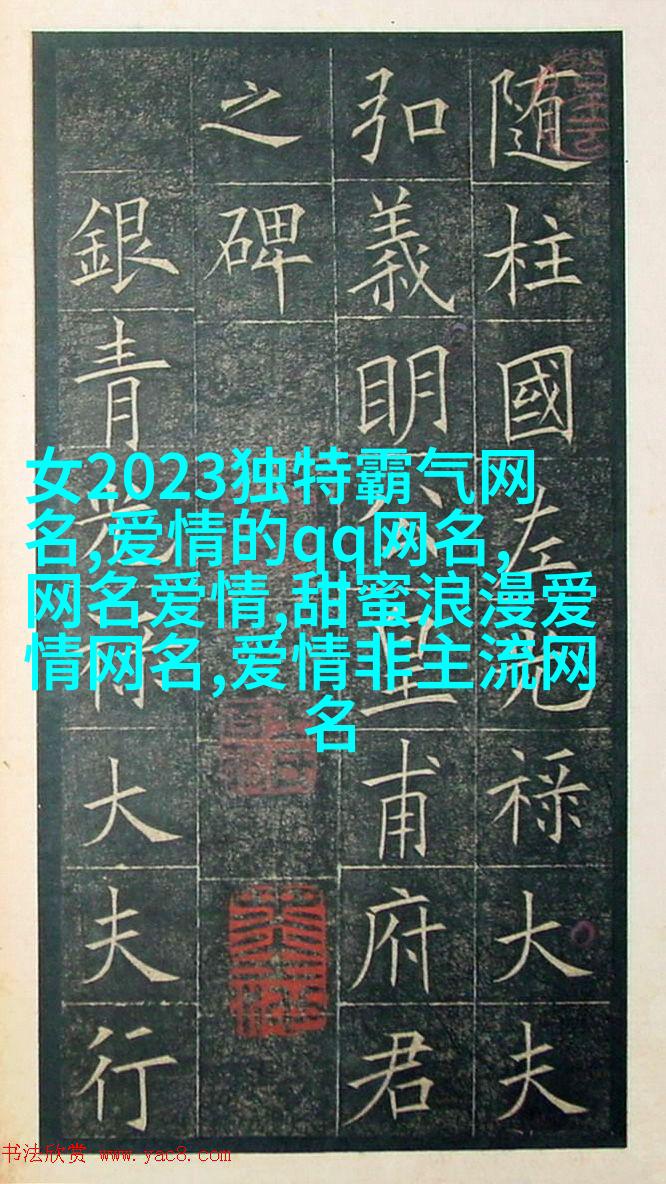 随柱國左光禄大夫
弘義明公皇甫府君
之碑
銀青光禄大夫行
女2023独特霸气网
名,爱情的qq网名,
网名爱情,甜蜜浪漫爱
情网名,爱情非主流网
名
书法欣赏 www.yac8.com